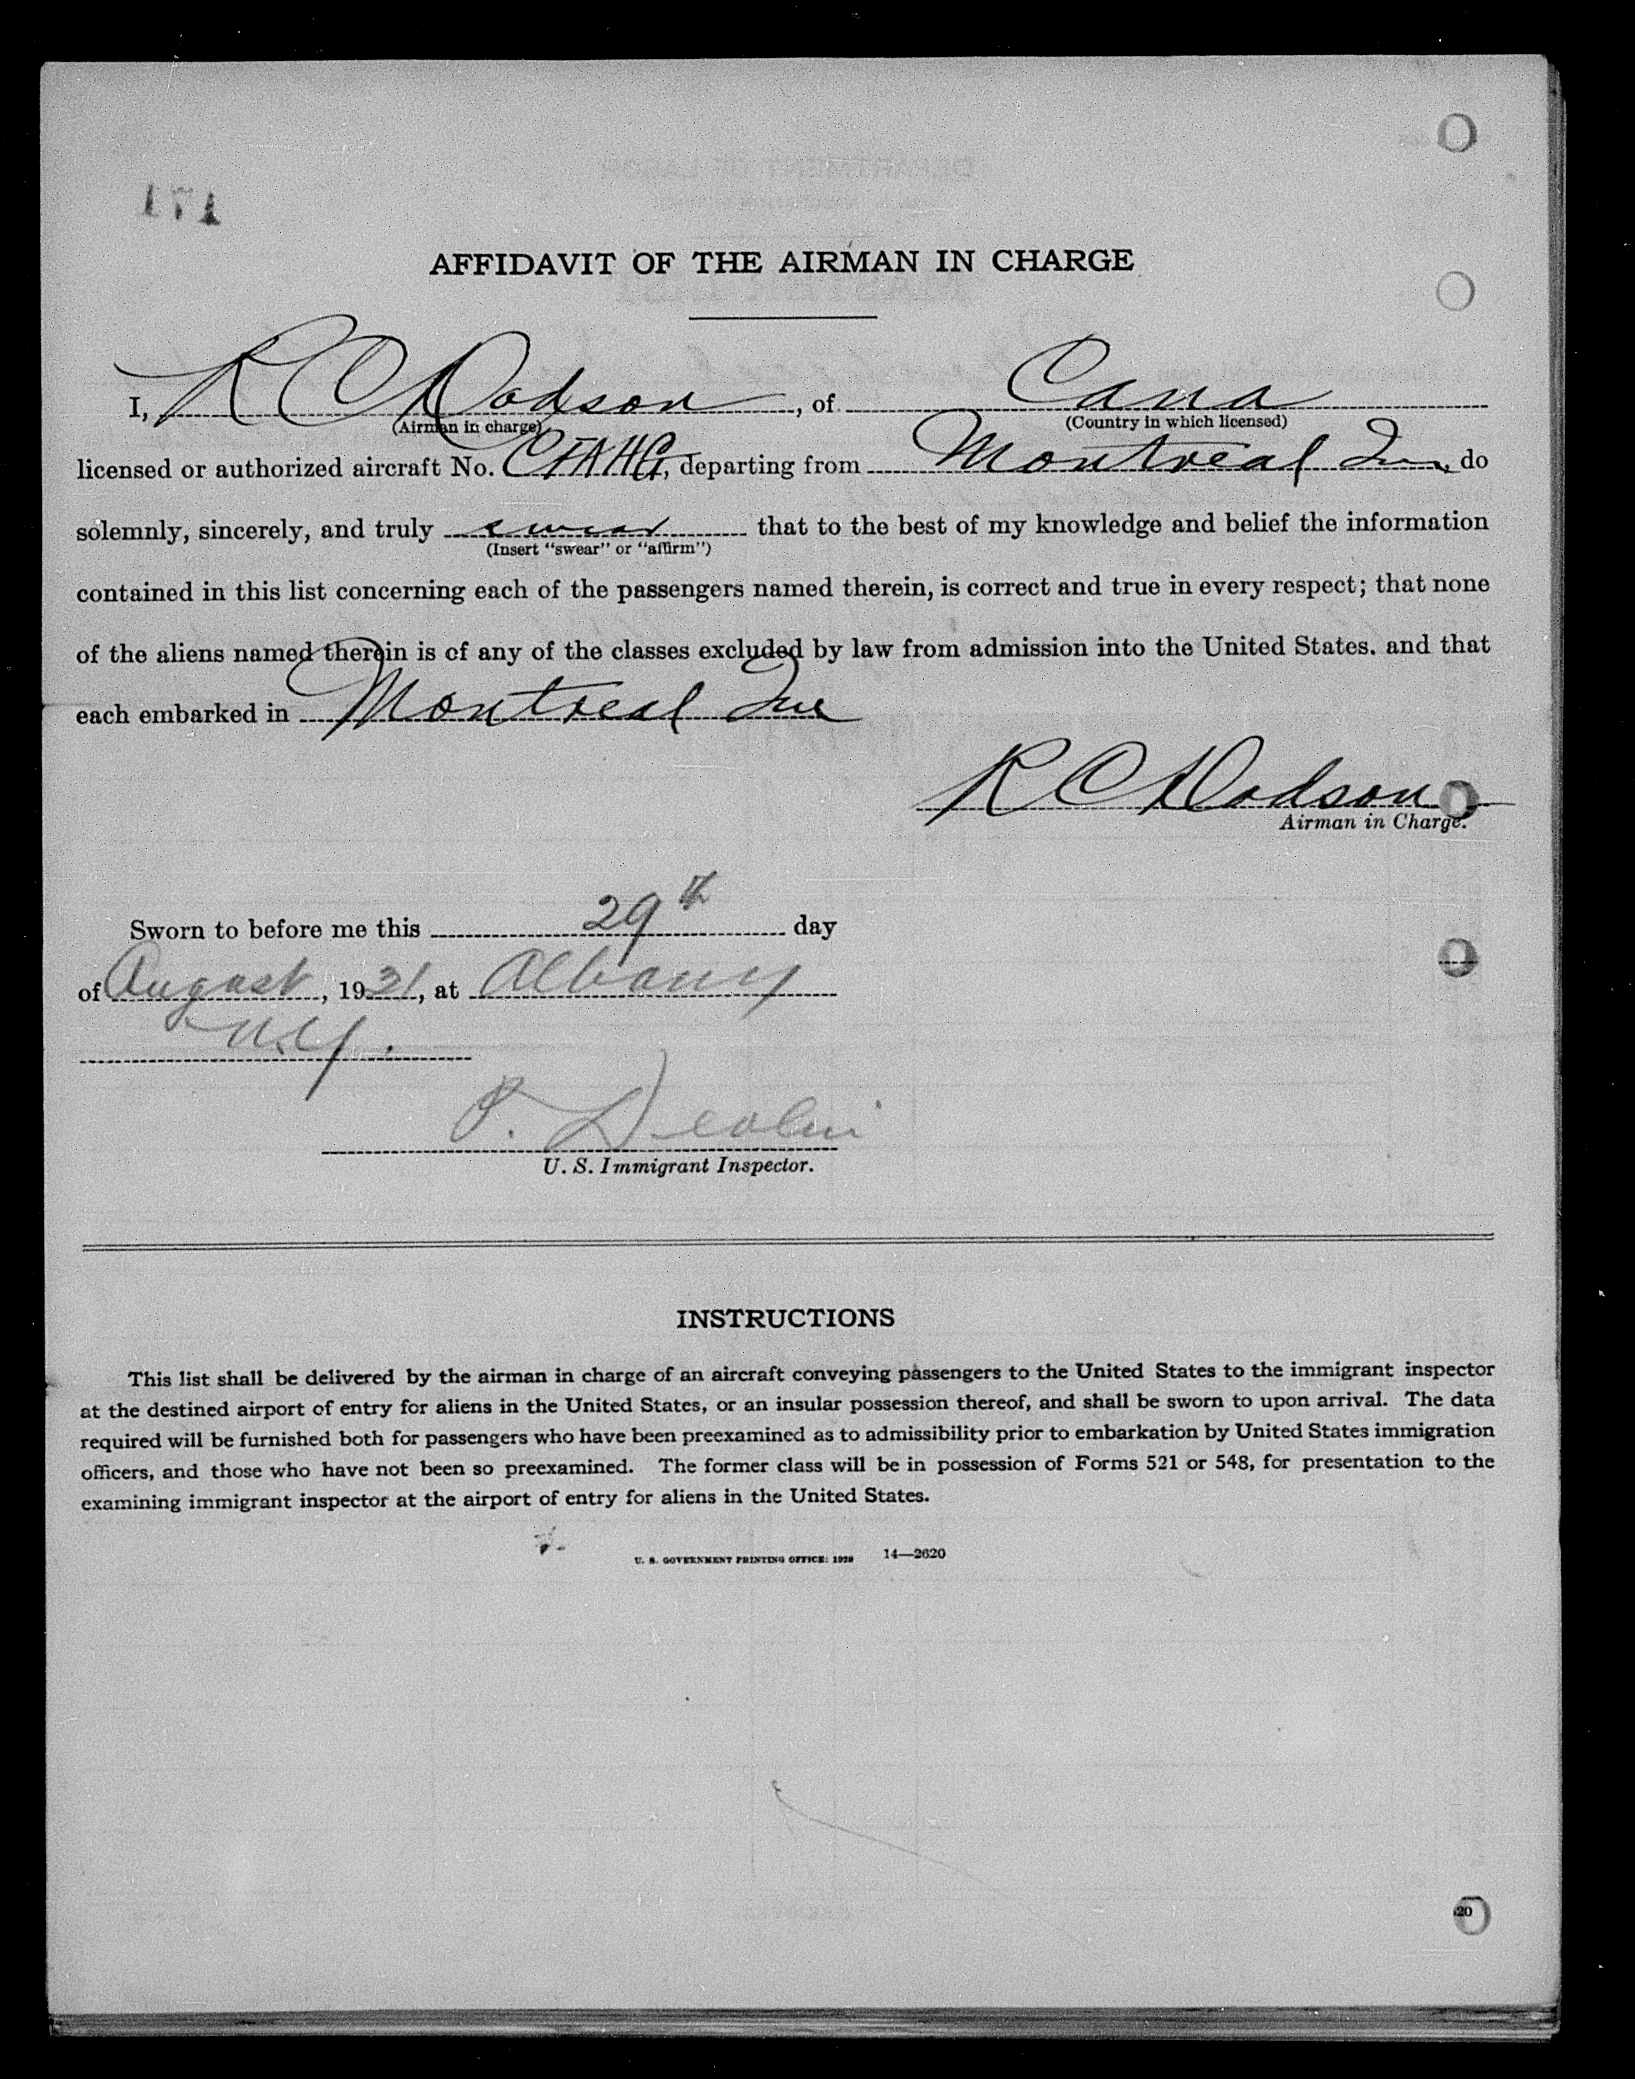 171
AFFIDAVIT OF THE AIRMAN IN CHARGE
I, R C Dodson, of Cana
(Airman in charge) (Country in which licensed)
licensed or authorized aircraft No. CFAHG, departing from Montreal Que, do
solemnly, sincerely, and truly swear that to the best of my knowledge and belief the information
(Insert "swear" or "affirm")
contained in this list concerning each of the passengers named therein, is correct and true in every respect; that none
of the aliens named therein is of any of the classes excluded by law from admission into the United States. and that
each embarked in Montreal Que
R C Dodson
Airman in Charge.
Sworn to before me this 29th day
of August, 1931, at Albany
N.Y.
P. Devlin
U. S. Immigrant Inspector.
INSTRUCTIONS
This list shall be delivered by the airman in charge of an aircraft conveying passengers to the United States to the immigrant inspector
at the destined airport of entry for aliens in the United States, or an insular possession thereof, and shall be sworn to upon arrival. The data
required will be furnished both for passengers who have been preexamined as to admissibility prior to embarkation by United States immigration
officers, and those who have not been so preexamined. The former class will be in possession of Forms 521 or 548, for presentation to the
examining immigrant inspector at the airport of entry for aliens in the United States.
U. S. GOVERNMENT PRINTING OFFICE: 1929 14—2620
20